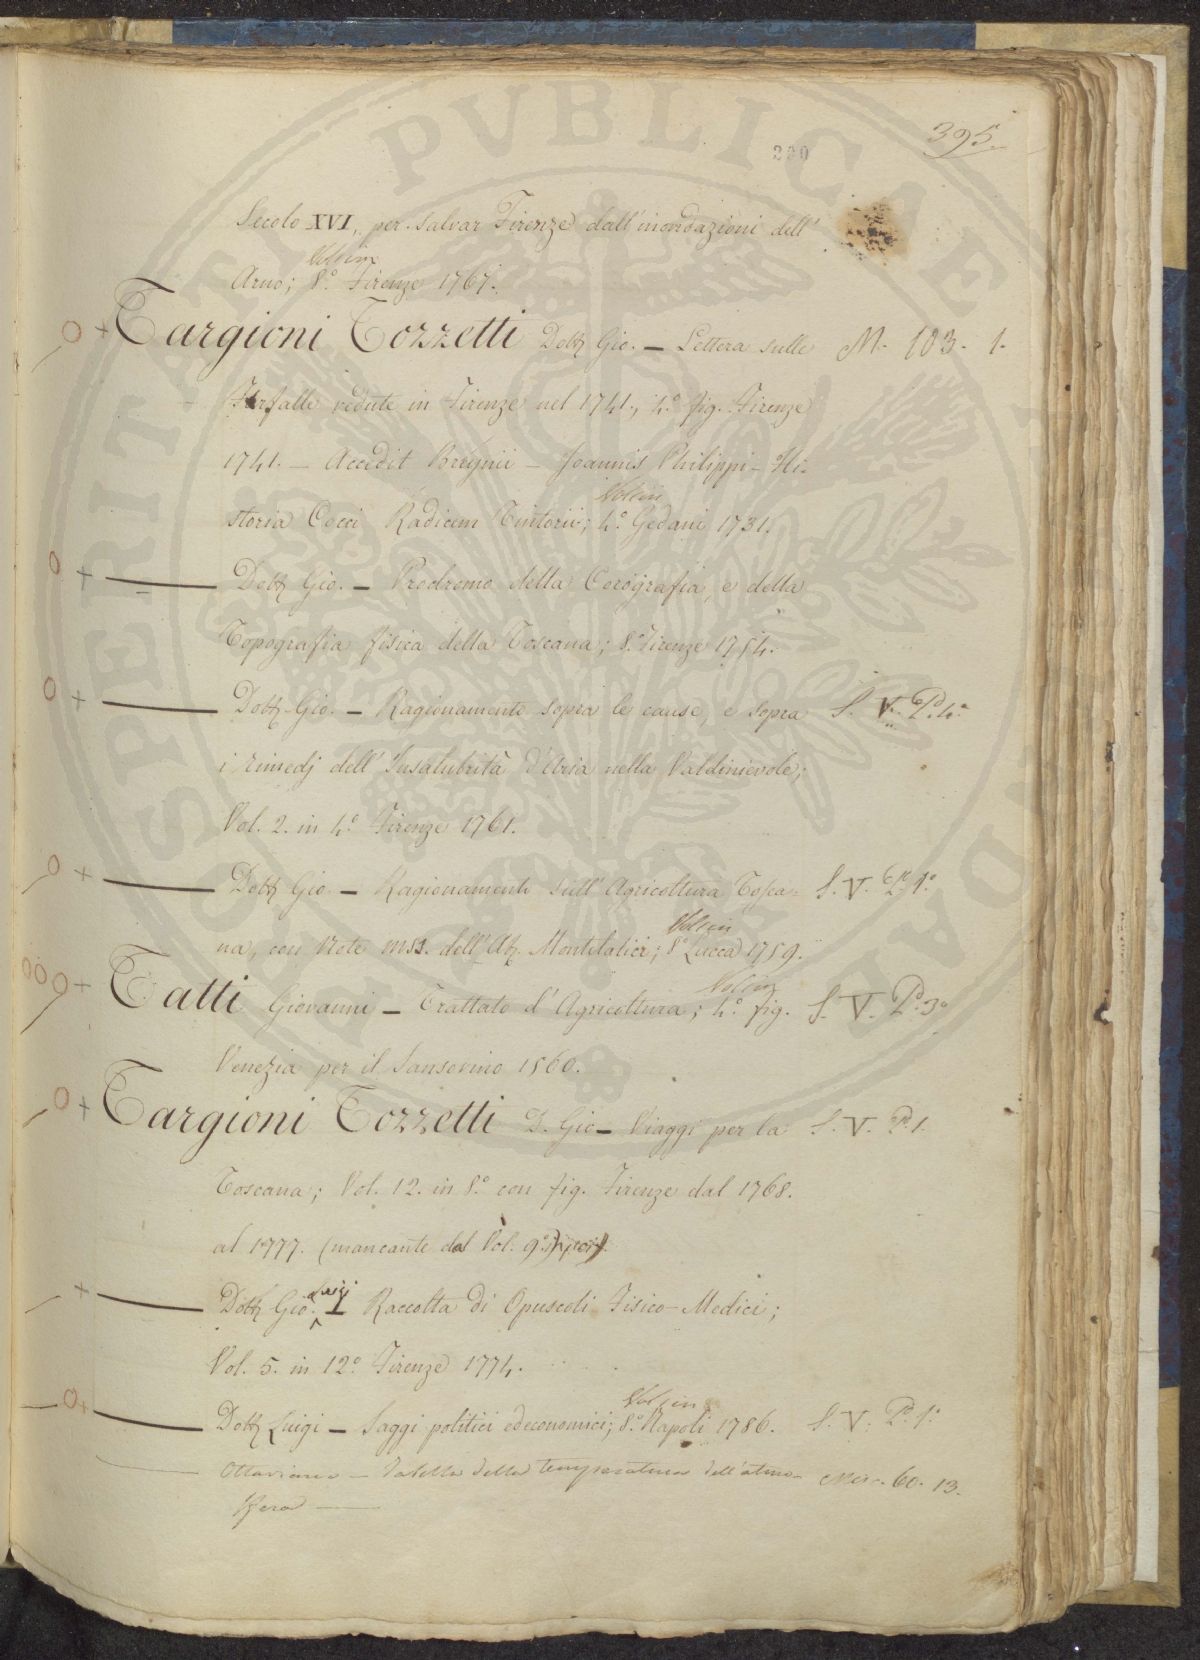 395.
200
Secolo XVI, per salvar Firenze dall'inondazioni dell'
Vol. in
Arno; 8.º Firenze 1767.
Targioni Tozzetti Dott. Gio. — Lettera sulle M. 103. 1.
Farfalle vedute in Firenze nel 1741., 4.º fig. Firenze
1741. — Accedit Breynii — Joannis Philippi - Hi-
Vol. in
storia Cocci Radicum Tintorii; 4.º Gedani 1731.
Dott. Gio. — Prodromo della Corografia, e della
Topografia fisica della Toscana; 8.º Firenze 1754.
Dott. Gio. — Ragionamento sopra le cause, e sopra S. V. P.º 4.º
i rimedj dell'Insalubrità d'Aria nella Valdinievole;
Vol. 2. in 4.º Firenze 1761.
Dott. Gio. — Ragionamenti sull'Agricoltura Tosca- S. V. P.º 1.º
Vol. in
na, con Note mss. dell'Ab. Montelatici; 8.º Lucca 1759.
Vol. in
Tatti Giovanni — Trattato d'Agricoltura; 4.º fig. S. V. P.º 3.º
Venezia per il Sansovino 1560.
Targioni Tozzetti D. Gio — Viaggi per la S. V. P.º 1.
Toscana; Vol. 12. in 8.º con fig. Firenze dal 1768.
al 1777. (mancante del Vol. 9.º
Luigi
Dott. Gio. — Raccolta di Opuscoli Fisico-Medici;
Vol. 5. in 12.º Firenze 1774.
Vol. in
Dott. Luigi — Saggi politici ed economici; 8.º Napoli 1786. S. V. P.º 1.º
Ottaviano — Tabella della temperatura dell'atmo- Misc. 60. 13.
sfera
PROSPERITATI PVBLICAE AVGENDAE